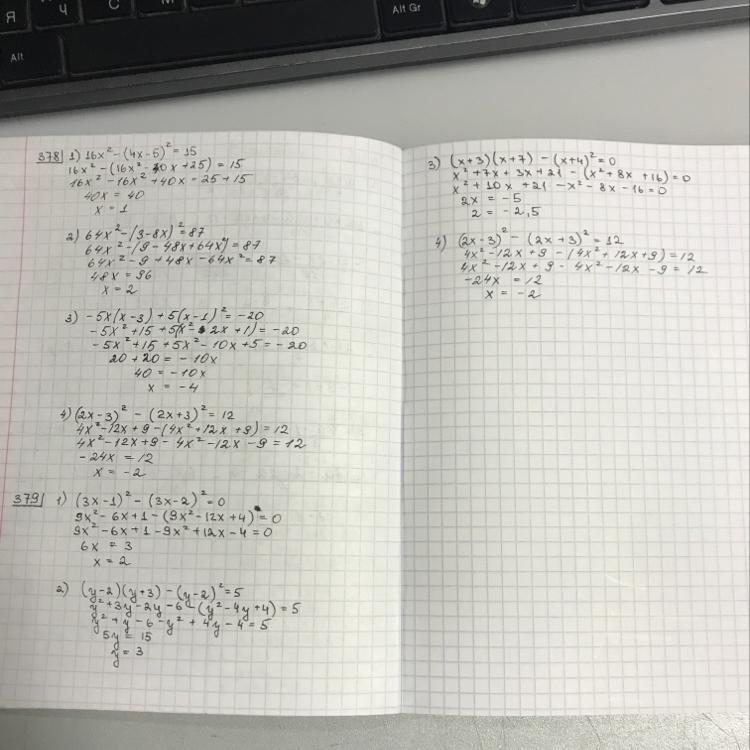 Я
Ч
С
М
Alt
Alt Gr
378 1) 16x² - (4x - 5)² = 15
16x² - (16x² - 40x + 25) = 15
16x² - 16x² + 40x = 25 + 15
40x = 40
x = 1
2) 64x² - (3 - 8x)² = 87
64x² - (9 - 48x + 64x²) = 87
64x² - 9 + 48x - 64x² = 87
48x = 96
x = 2
3) -5x(x - 3) + 5(x - 1)² = -20
-5x² + 15 + 5(x² - 2x + 1) = -20
-5x² + 15 + 5x² - 10x + 5 = -20
20 + 20 = -10x
40 = -10x
x = -4
4) (2x - 3)² - (2x + 3)² = 12
4x² - 12x + 9 - (4x² + 12x + 9) = 12
4x² - 12x + 9 - 4x² - 12x - 9 = 12
-24x = 12
x = -2
379 1) (3x - 1)² - (3x - 2)² = 0
9x² - 6x + 1 - (9x² - 12x + 4) = 0
9x² - 6x + 1 - 9x² + 12x - 4 = 0
6x = 3
x = 2
2) (y - 2)(y + 3) - (y - 2)² = 5
y² + 3y - 2y - 6 - (y² - 4y + 4) = 5
y² + y - 6 - y² + 4y - 4 = 5
5y = 15
y = 3
3) (x + 3)(x + 7) - (x + 4)² = 0
x² + 7x + 3x + 21 - (x² + 8x + 16) = 0
x² + 10x + 21 - x² - 8x - 16 = 0
2x = -5
2 = -2,5
4) (2x - 3)² - (2x + 3)² = 12
4x² - 12x + 9 - (4x² + 12x + 9) = 12
4x² - 12x + 9 - 4x² - 12x - 9 = 12
-24x = 12
x = -2